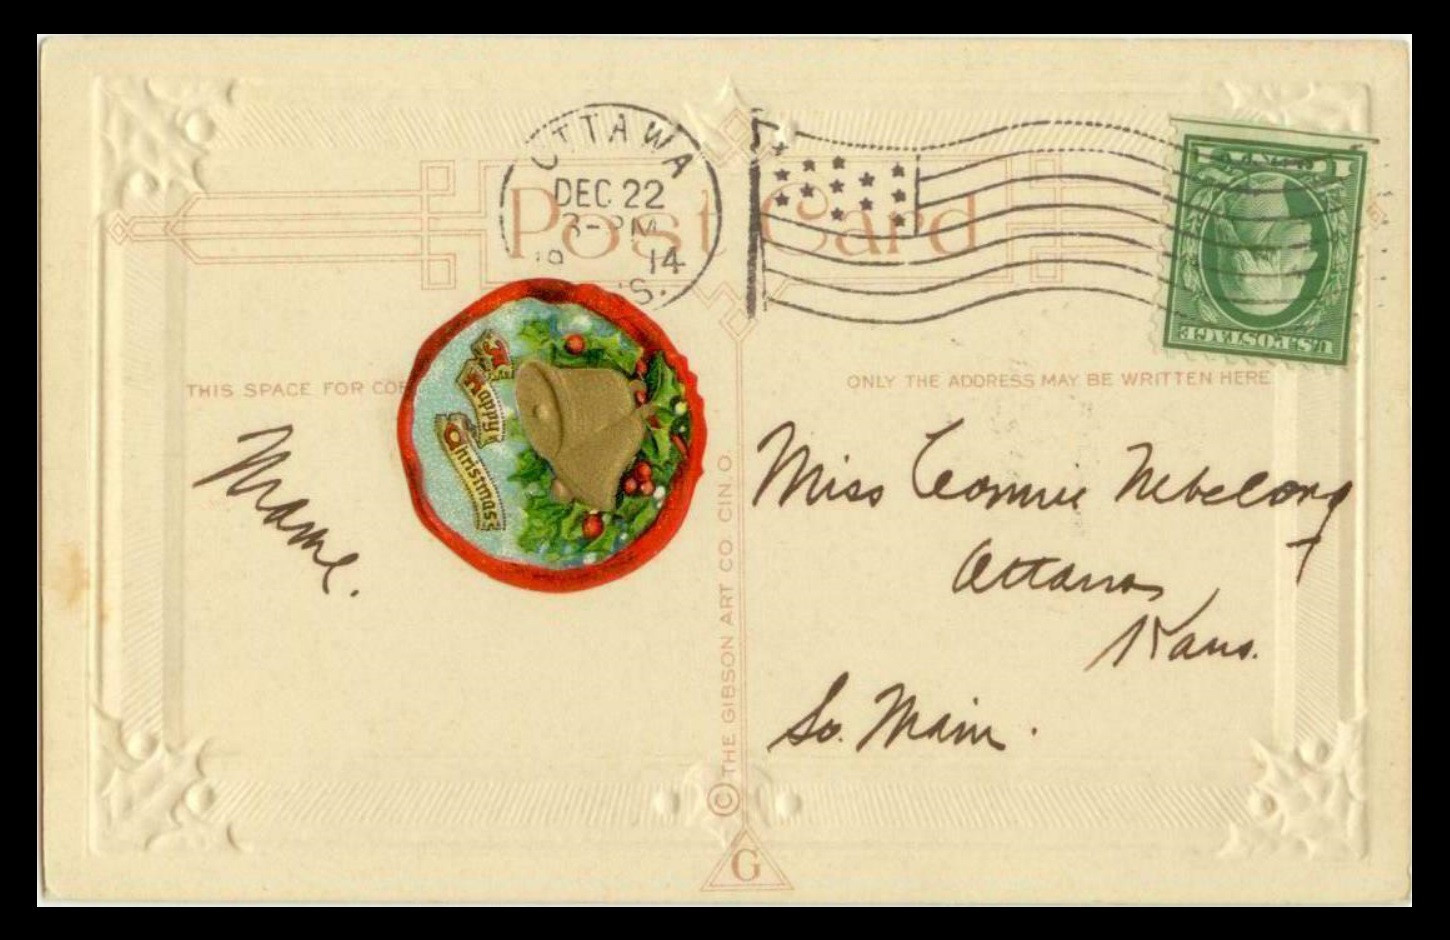 OTTAWA
DEC 22
3-PM
19 14
S.
Post Card
U.S. POSTAGE
THIS SPACE FOR COR
ONLY THE ADDRESS MAY BE WRITTEN HERE
A
Happy
Christmas
Mame.
Miss Connie Nebelong
Ottawa
Kans.
So. Main.
© THE GIBSON ART CO. CIN. O.
G